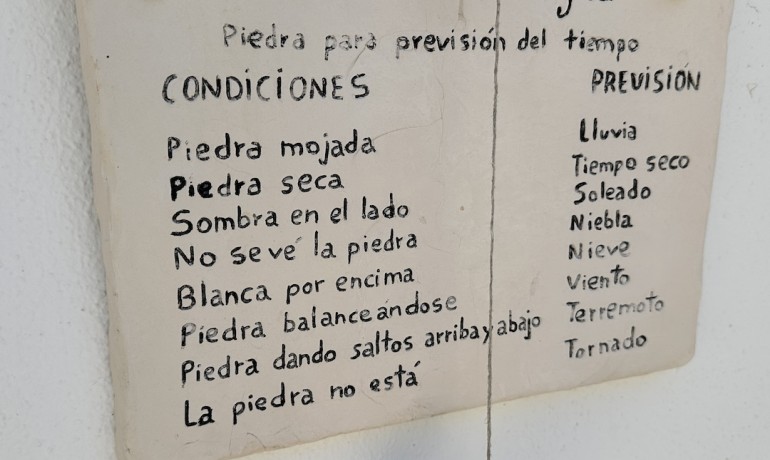 Piedra para previsión del tiempo
CONDICIONES PREVISIÓN
Piedra mojada Lluvia
Piedra seca Tiempo seco
Sombra en el lado Soleado
No se vé la piedra Niebla
Blanca por encima Nieve
Piedra balanceándose Viento
Piedra dando saltos arriba y abajo Terremoto
La piedra no está Tornado